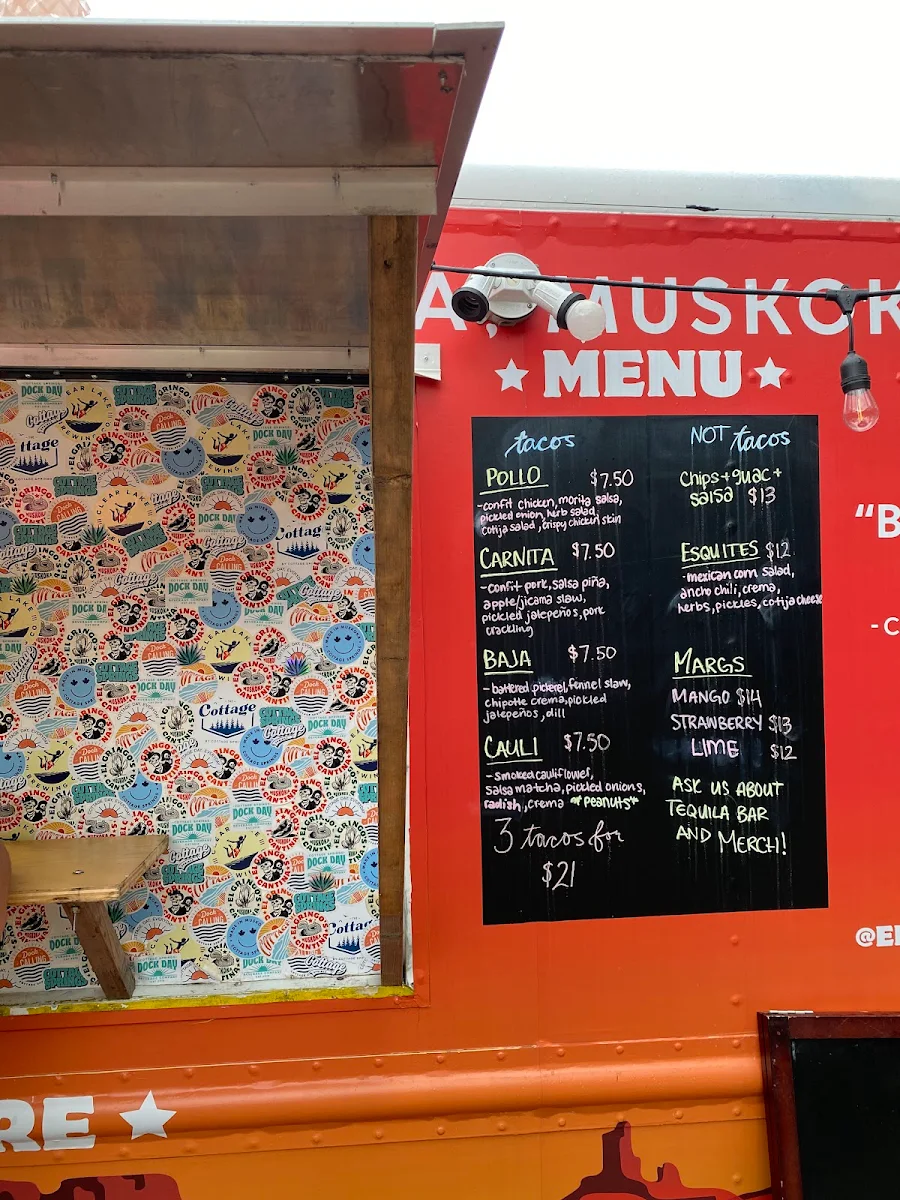 A, MUSKOK
MENU
tacos
POLLO $7.50
-confit chicken, morita salsa,
pickled onion, herb salad,
cotija salad, crispy chicken skin
CARNITA $7.50
-confit pork, salsa piña,
apple/jicama slaw,
pickled jalepeños, pork
crackling
BAJA $7.50
-battered pickerel, fennel slaw,
chipotle crema, pickled
jalepeños, dill
CAULI $7.50
-smoked cauliflower,
salsa matcha, pickled onions,
radish, crema *Peanuts*
3 tacos for
$21
NOT tacos
Chips + guac +
salsa $13
ESQUITES $12
-mexican corn salad,
ancho chili, crema,
herbs, pickles, cotija cheese
MARGS
MANGO $14
STRAWBERRY $13
LIME $12
ASK US ABOUT
TEQUILA BAR
AND MERCH!
"B
- C
@E
RE
DOCK DAY
Cottage
Dock CALLING
COTTAGE SPRINGS
EL GRINGO'S CANTINA
CLEAR LAKE BREWING